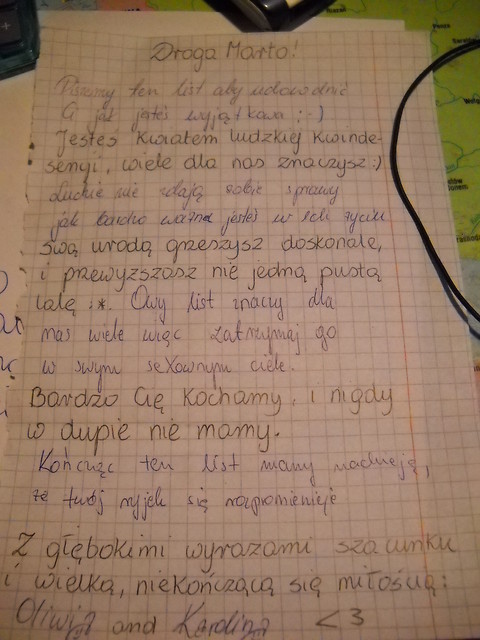 Droga Marto!
Piszemy ten list aby udowodnić
Ci jak jesteś wyjątkowa ;-)
Jesteś kwiatem ludzkiej kwinde-
sencji, wiele dla nas znaczysz :)
Ludzie nie zdają sobie sprawy
jak bardzo ważna jesteś w ich życiu
swą urodą grzeszysz doskonale,
i przewyższasz nie jedną pustą
lalę :*. Owy list znaczy dla
nas wiele więc zatrzymaj go
w swym sexownym ciele.
Bardzo Cię kochamy, i nigdy
w dupie nie mamy.
Kończąc ten list mamy nadzieję,
że twój ryjek się rozpromienieje
Z głębokimi wyrazami szacunku
i wielką, niekończącą się miłością:
Oliwja and Karolina <3